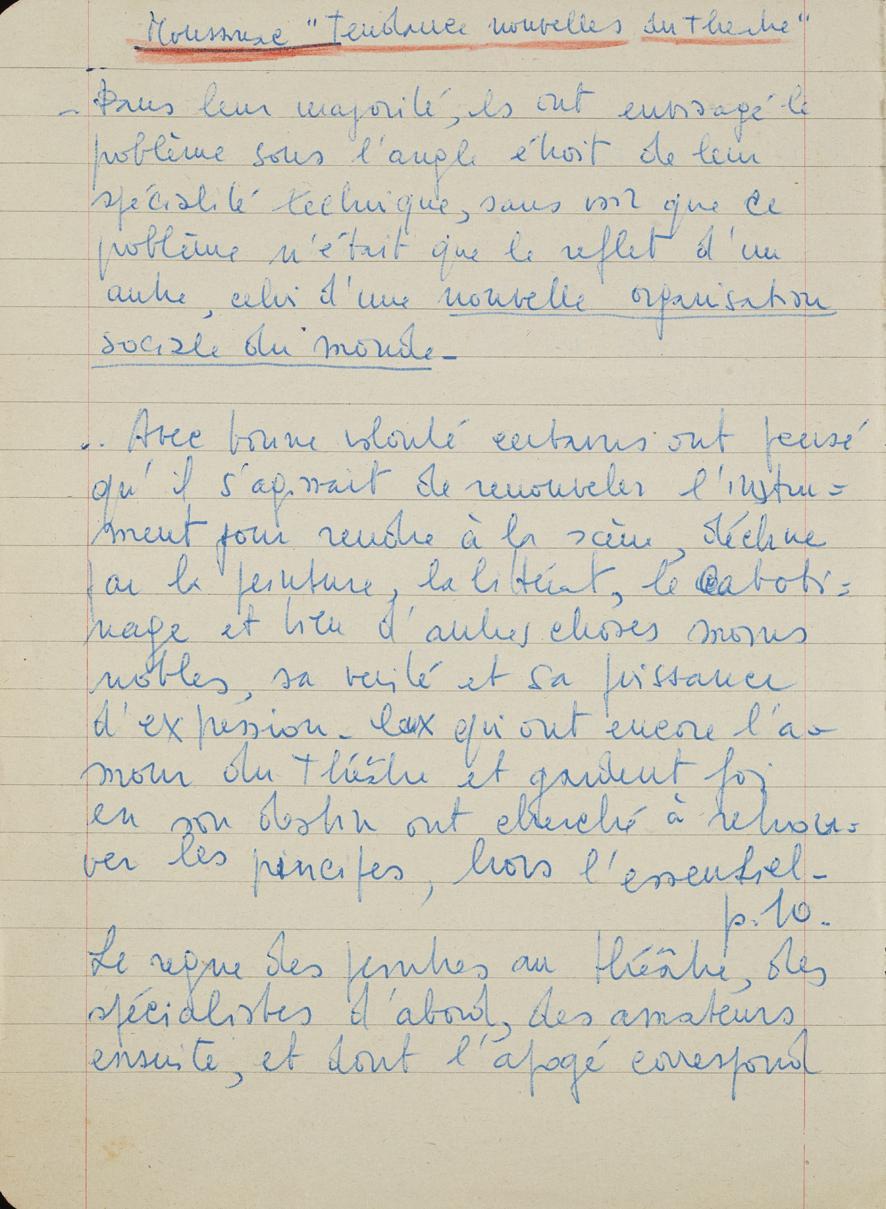 Moussinac "Tendance nouvelles du theatre"
- Dans leur majorité, ils ont envisagé le
problème sous l'angle étroit de leur
spécialité technique, sans voir que ce
problème n'était que le reflet d'un
autre, celui d'une nouvelle organisation
sociale du monde -
.. Avec bonne volonté certains ont pensé
qu'il s'agissait de renouveler l'instru=
ment pour rendre à la scène, déchue
par la peinture, la littérat, le caboti=
nage et bien d'autres choses moins
nobles, sa verité et sa puissance
d'expression - Ceux qui ont encore l'a-
mour du théâtre et gardent foi
en son destin ont cherché à retrou=
ver les principes, hors l'essentiel -
p. 10.
Le regne des peintres au théâtre, des
spécialistes d'abord, des amateurs
ensuite, et dont l'apogé correspond